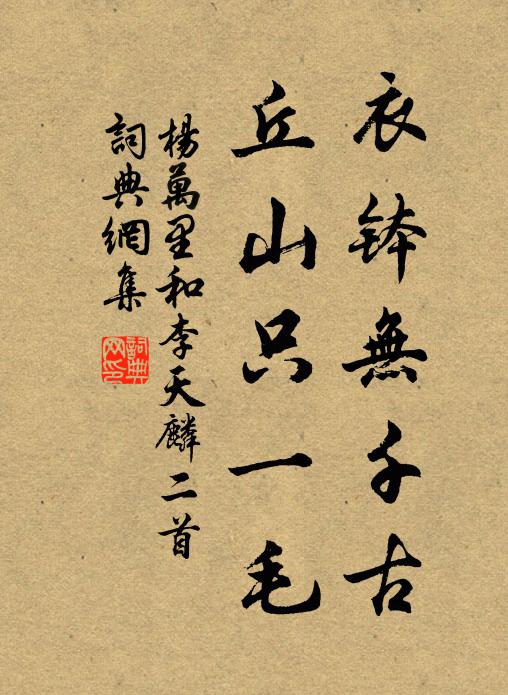 衣鉢無千古
丘山只一毛
楊萬里和李天麟二首
詞典網集
詞典网印